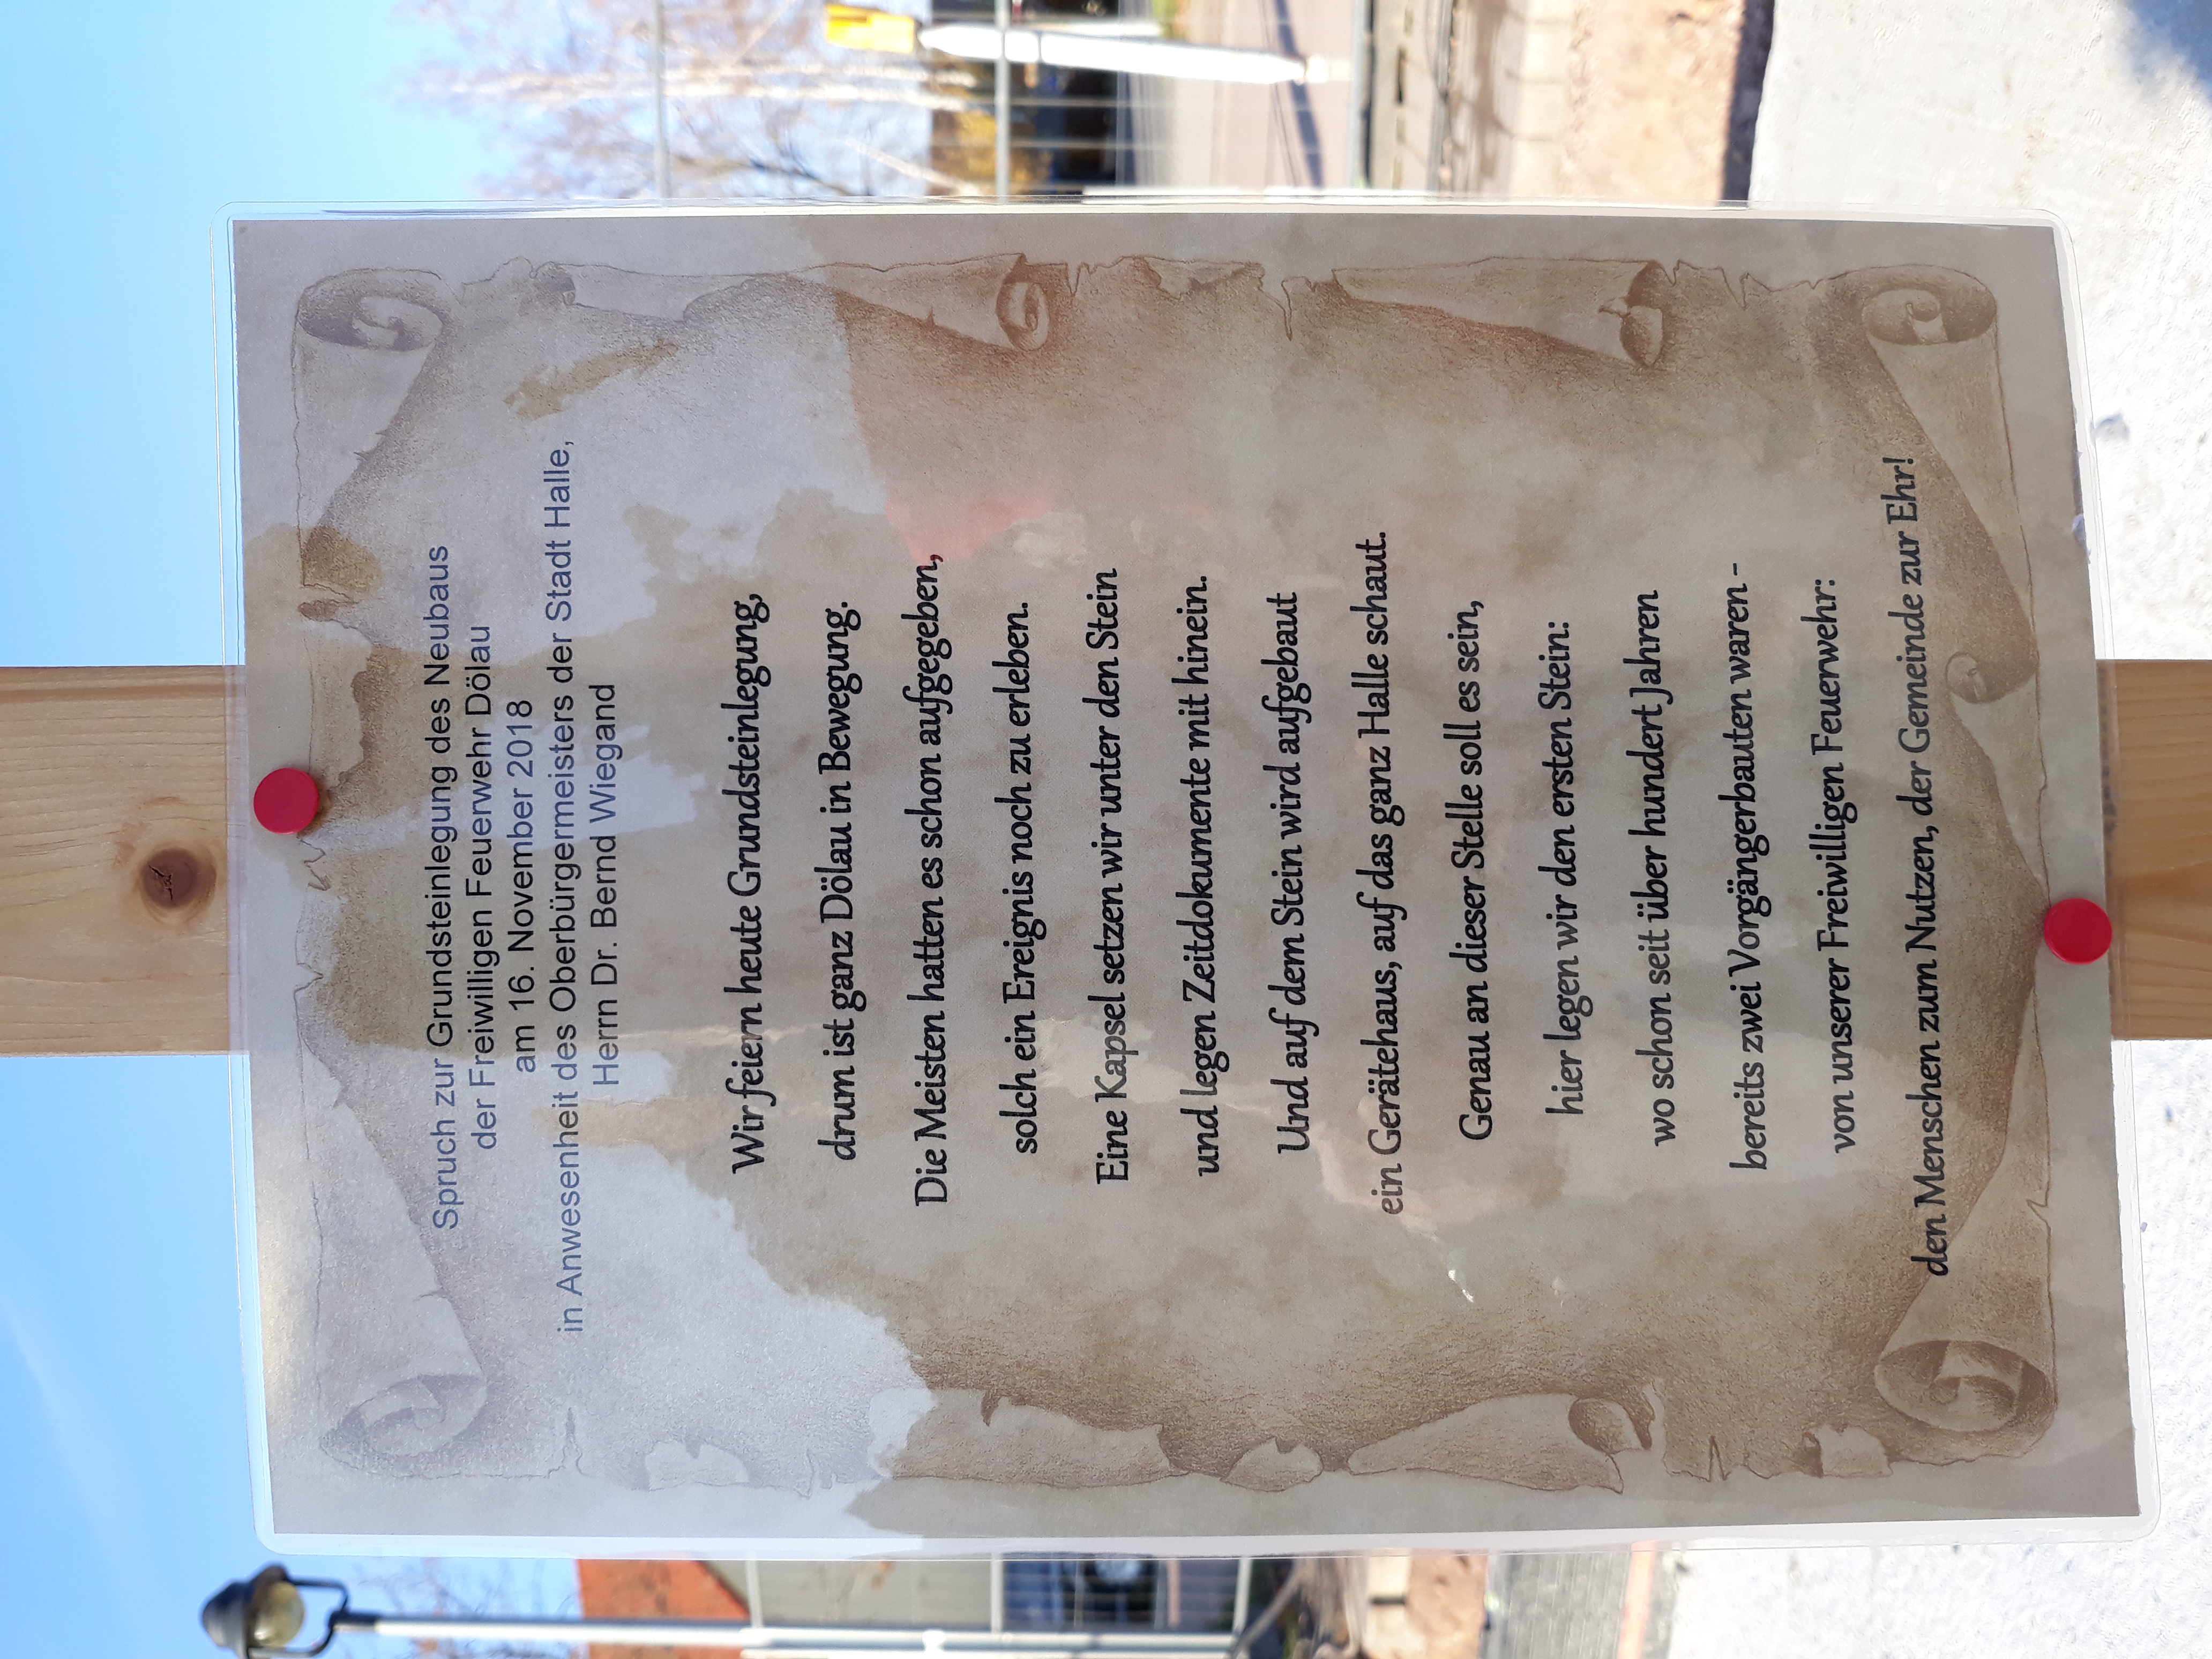 Spruch zur Grundsteinlegung des Neubaus
der Freiwilligen Feuerwehr Dölau
am 16. November 2018
in Anwesenheit des Oberbürgermeisters der Stadt Halle,
Herrn Dr. Bernd Wiegand
Wir feiern heute Grundsteinlegung,
drum ist ganz Dölau in Bewegung.
Die Meisten hatten es schon aufgegeben,
solch ein Ereignis noch zu erleben.
Eine Kapsel setzen wir unter den Stein
und legen Zeitdokumente mit hinein.
Und auf dem Stein wird aufgebaut
ein Gerätehaus, auf das ganz Halle schaut.
Genau an dieser Stelle soll es sein,
hier legen wir den ersten Stein:
wo schon seit über hundert Jahren
bereits zwei Vorgängerbauten waren -
von unserer Freiwilligen Feuerwehr:
den Menschen zum Nutzen, der Gemeinde zur Ehr!